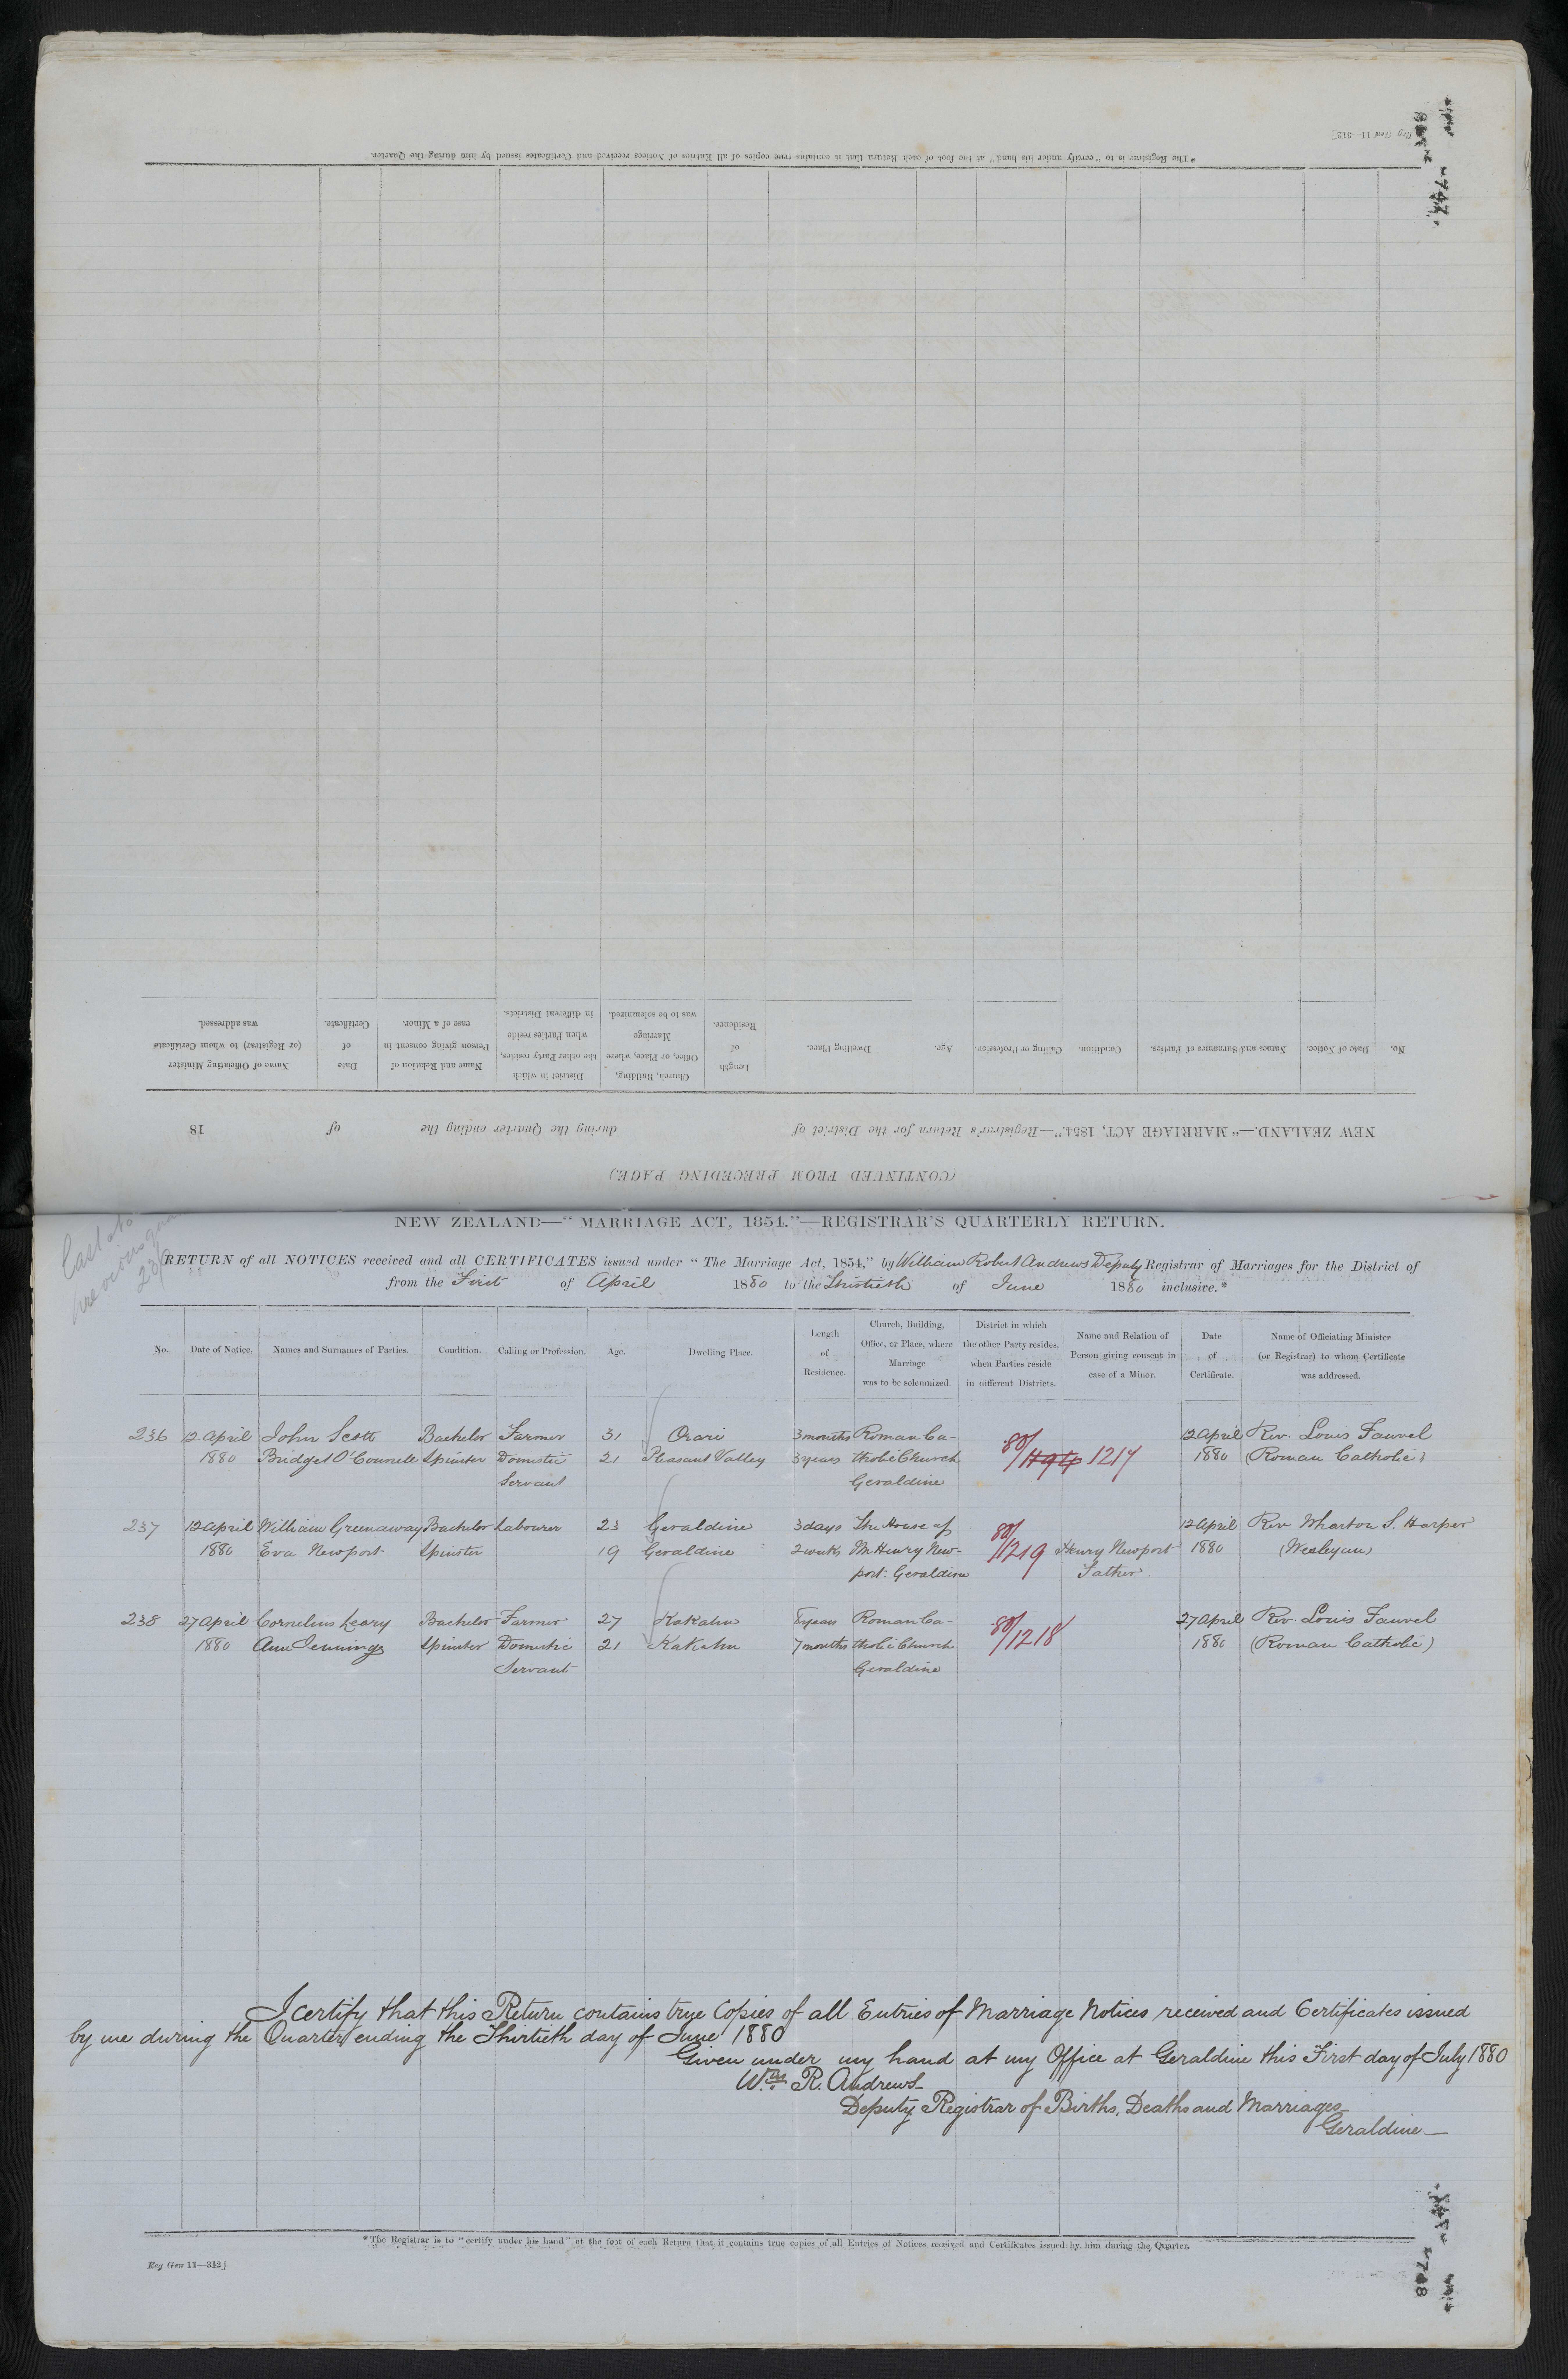 Reg Gen 11—312]
* The Registrar is to "certify under his hand" at the foot of each Return that it contains true copies of all Entries of Notices received and Certificates issued by him during the Quarter.
(CONTINUED FROM PRECEDING PAGE.)
NEW ZEALAND.—"MARRIAGE ACT, 1854."—Registrar's Return for the District of during the Quarter ending the of 18
No. Date of Notice. Names and Surnames of Parties. Condition. Calling or Profession. Age. Dwelling Place. Length of Residence. Church, Building, Office, or Place, where Marriage was to be solemnized. District in which the other Party resides, when Parties reside in different Districts. Name and Relation of Person giving consent in case of a Minor. Date of Certificate. Name of Officiating Minister (or Registrar) to whom Certificate was addressed.
747
NEW ZEALAND—"MARRIAGE ACT, 1854."—REGISTRAR'S QUARTERLY RETURN.
RETURN of all NOTICES received and all CERTIFICATES issued under "The Marriage Act, 1854," by William Robert Andrews Deputy Registrar of Marriages for the District of
from the First of April 1880 to the Thirtieth of June 1880 inclusive.*
No. Date of Notice. Names and Surnames of Parties. Condition. Calling or Profession. Age. Dwelling Place. Length of Residence. Church, Building, Office, or Place, where Marriage was to be solemnized. District in which the other Party resides, when Parties reside in different Districts. Name and Relation of Person giving consent in case of a Minor. Date of Certificate. Name of Officiating Minister (or Registrar) to whom Certificate was addressed.
236 12 April John Scott Bachelor Farmer 31 Orari 3 months Roman Ca- 80/ 12 April Rev. Louis Fauvel
1880 Bridget O'Connell Spinster Domestic 21 Pleasant Valley 3 years tholic Church 1217 1880 (Roman Catholic)
Servant Geraldine
237 12 April William Greenaway Bachelor Labourer 23 Geraldine 3 days The House of 80/ 12 April Rev Wharton S. Harper
1880 Eva Newport Spinster 19 Geraldine 2 weeks Mr Henry New- 1219 Henry Newport 1880 (Wesleyan)
port. Geraldine Father.
238 27 April Cornelius Leary Bachelor Farmer 27 Kakahu 8 years Roman Ca- 80/ 27 April Rev. Louis Fauvel
1880 Ann Jennings Spinster Domestic 21 Kakahu 7 months tholic Church 1218 1880 (Roman Catholic)
Servant Geraldine
I certify that this Return contains true Copies of all Entries of Marriage Notices received and Certificates issued
by me during the Quarter ending the Thirtieth day of June 1880
Given under my hand at my Office at Geraldine this First day of July 1880
Wm R. Andrews
Deputy Registrar of Births, Deaths and Marriages
Geraldine—
* The Registrar is to "certify under his hand" at the foot of each Return that it contains true copies of all Entries of Notices received and Certificates issued by him during the Quarter.
Reg Gen 11—312]
748